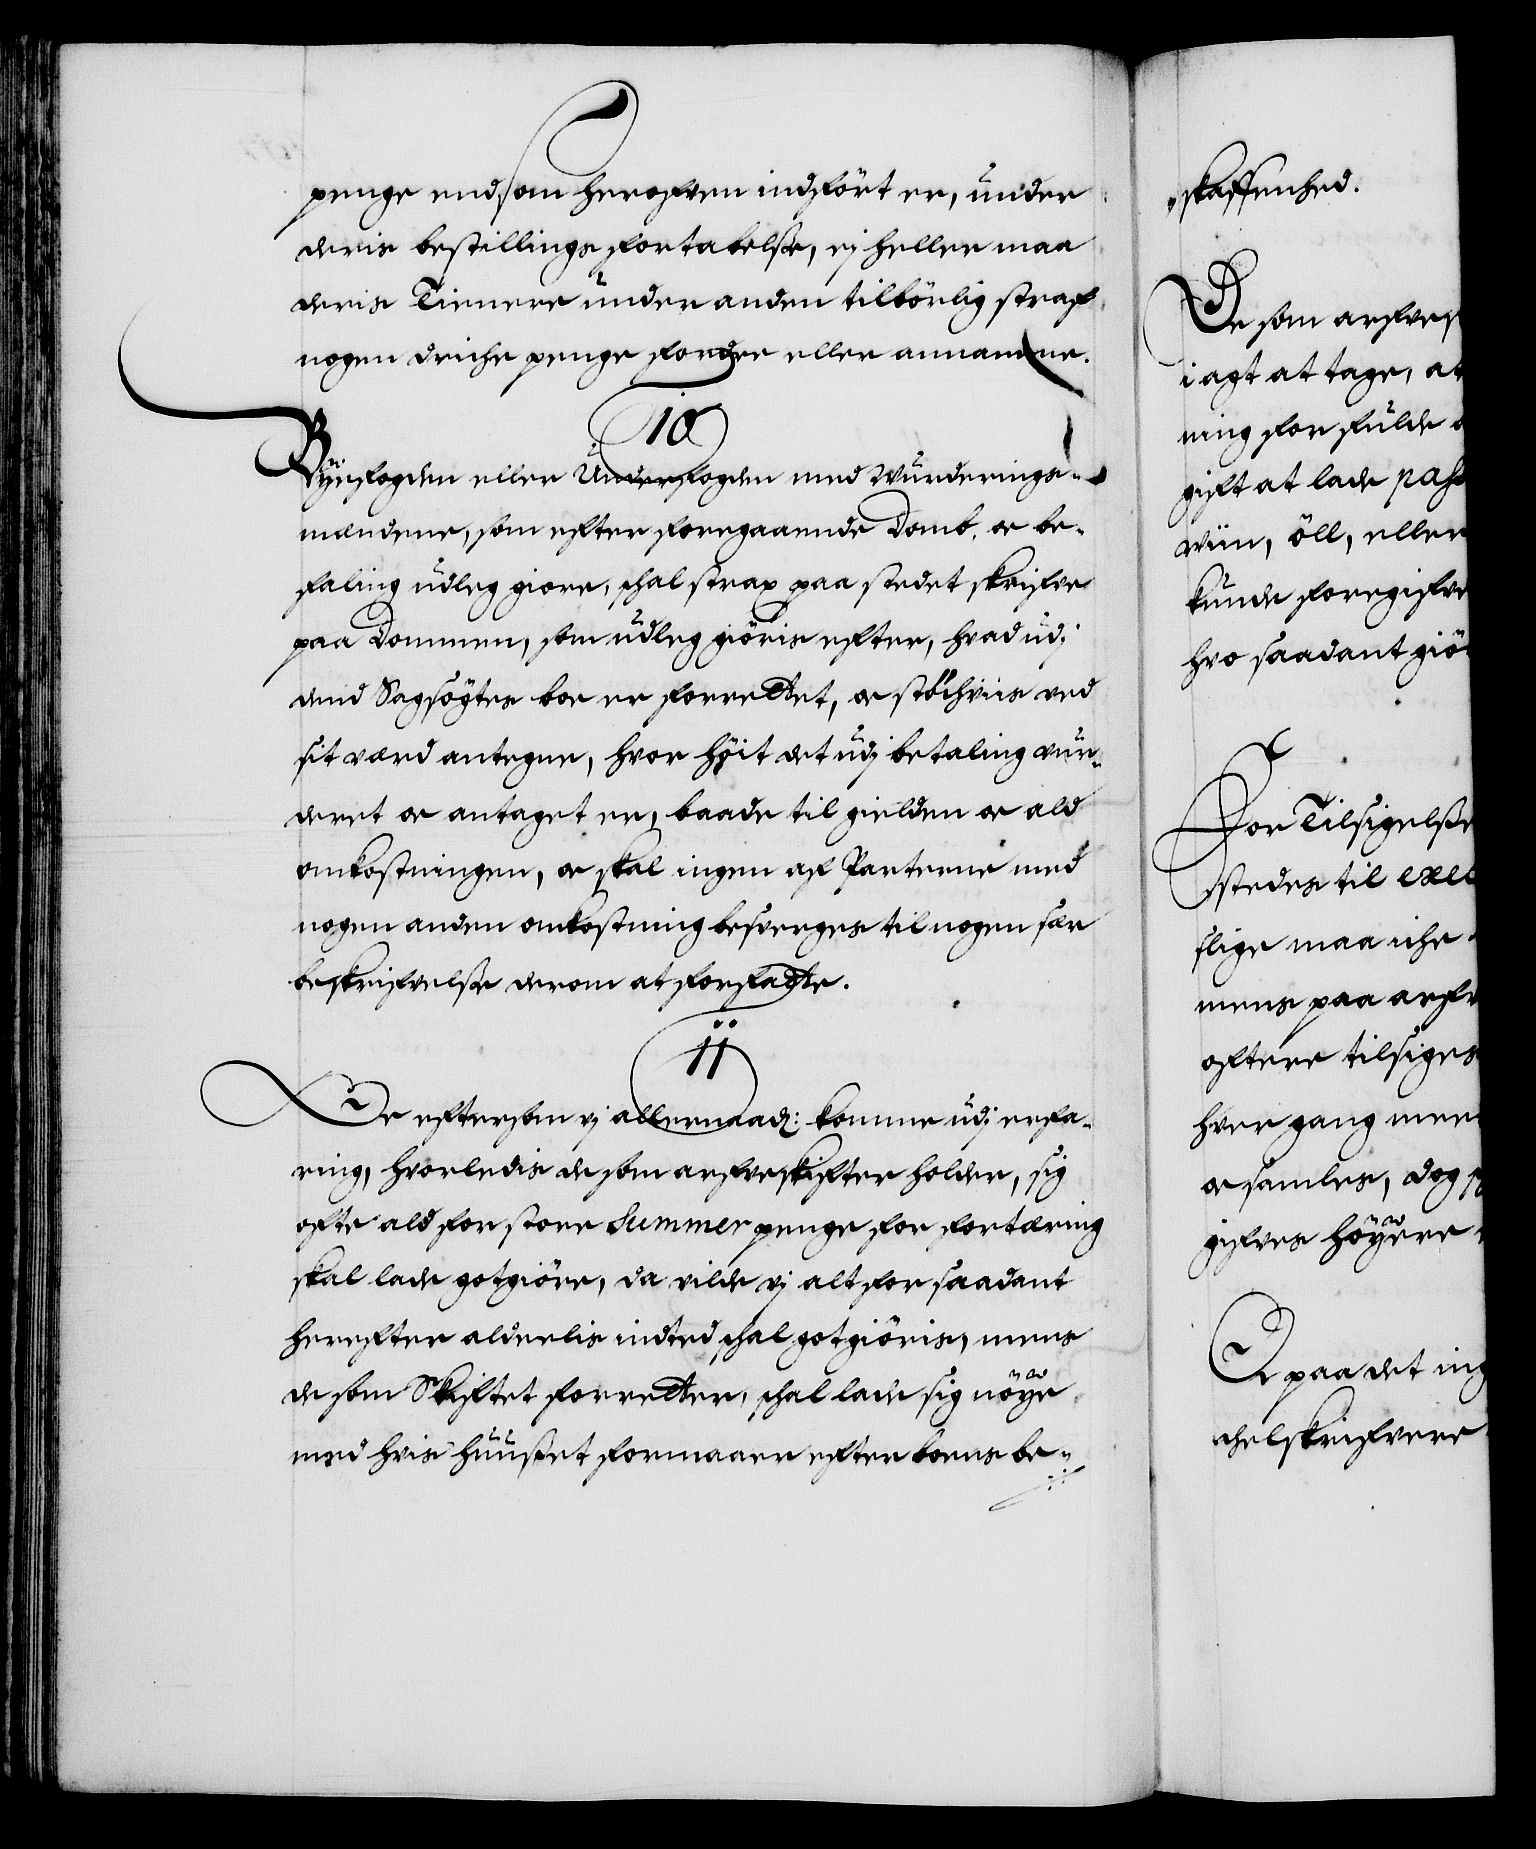 penge end som herofven indfört er, under
deris bestillings fortabelsse, ej heller maa
deris Tienere under anden tilbörlig straf
nogen driche penge fordre eller annamme.
10
Byefogden eller Underfogden med Wurderings-
mændene, som efter foregaaende Domb, oc be-
faling udleg giøre, schal strax paa stedet skrifve
paa Dommen, som udleg giöris efter, hvad udj
dend Sagsögtes boe er forrettet, oc stöchviis ved
sit værd antegne, hvor höit det udj betaling vur-
deret oc antaget er, baade til gielden oc ald
omkostningen, oc skal ingen af Parterne med
nogen anden omkostning besverges til nogen sær
beskrifvelsse derom at forfatte.
11
Oc eftersom vj allernaad: komme udj erfa-
ring, hvorledis de som arfveskifter holder, sig
ofte ald for store Summer penge for fortæring
skal lade gotgiöre, da vilde vj alt for saadant
herefter alderlis indted schal gotgiöris, mens
de som Skiftet forretter, schal lade sig nöye
med hvis huusset formaaer efter boens be-
skaffenhed.
De som arfves
i agt at tage, at
ning for fulde
gift at lade pass
viin, öll, eller
kunde foregifve
hvo saadant giö
For Tilsigelsse
stedes til
slige maa iche
mens paa arfv
oftere tilsiges
hver gang meer
oc samles, dog
gifves höyere
Oc paa det ing
chelskrifvere